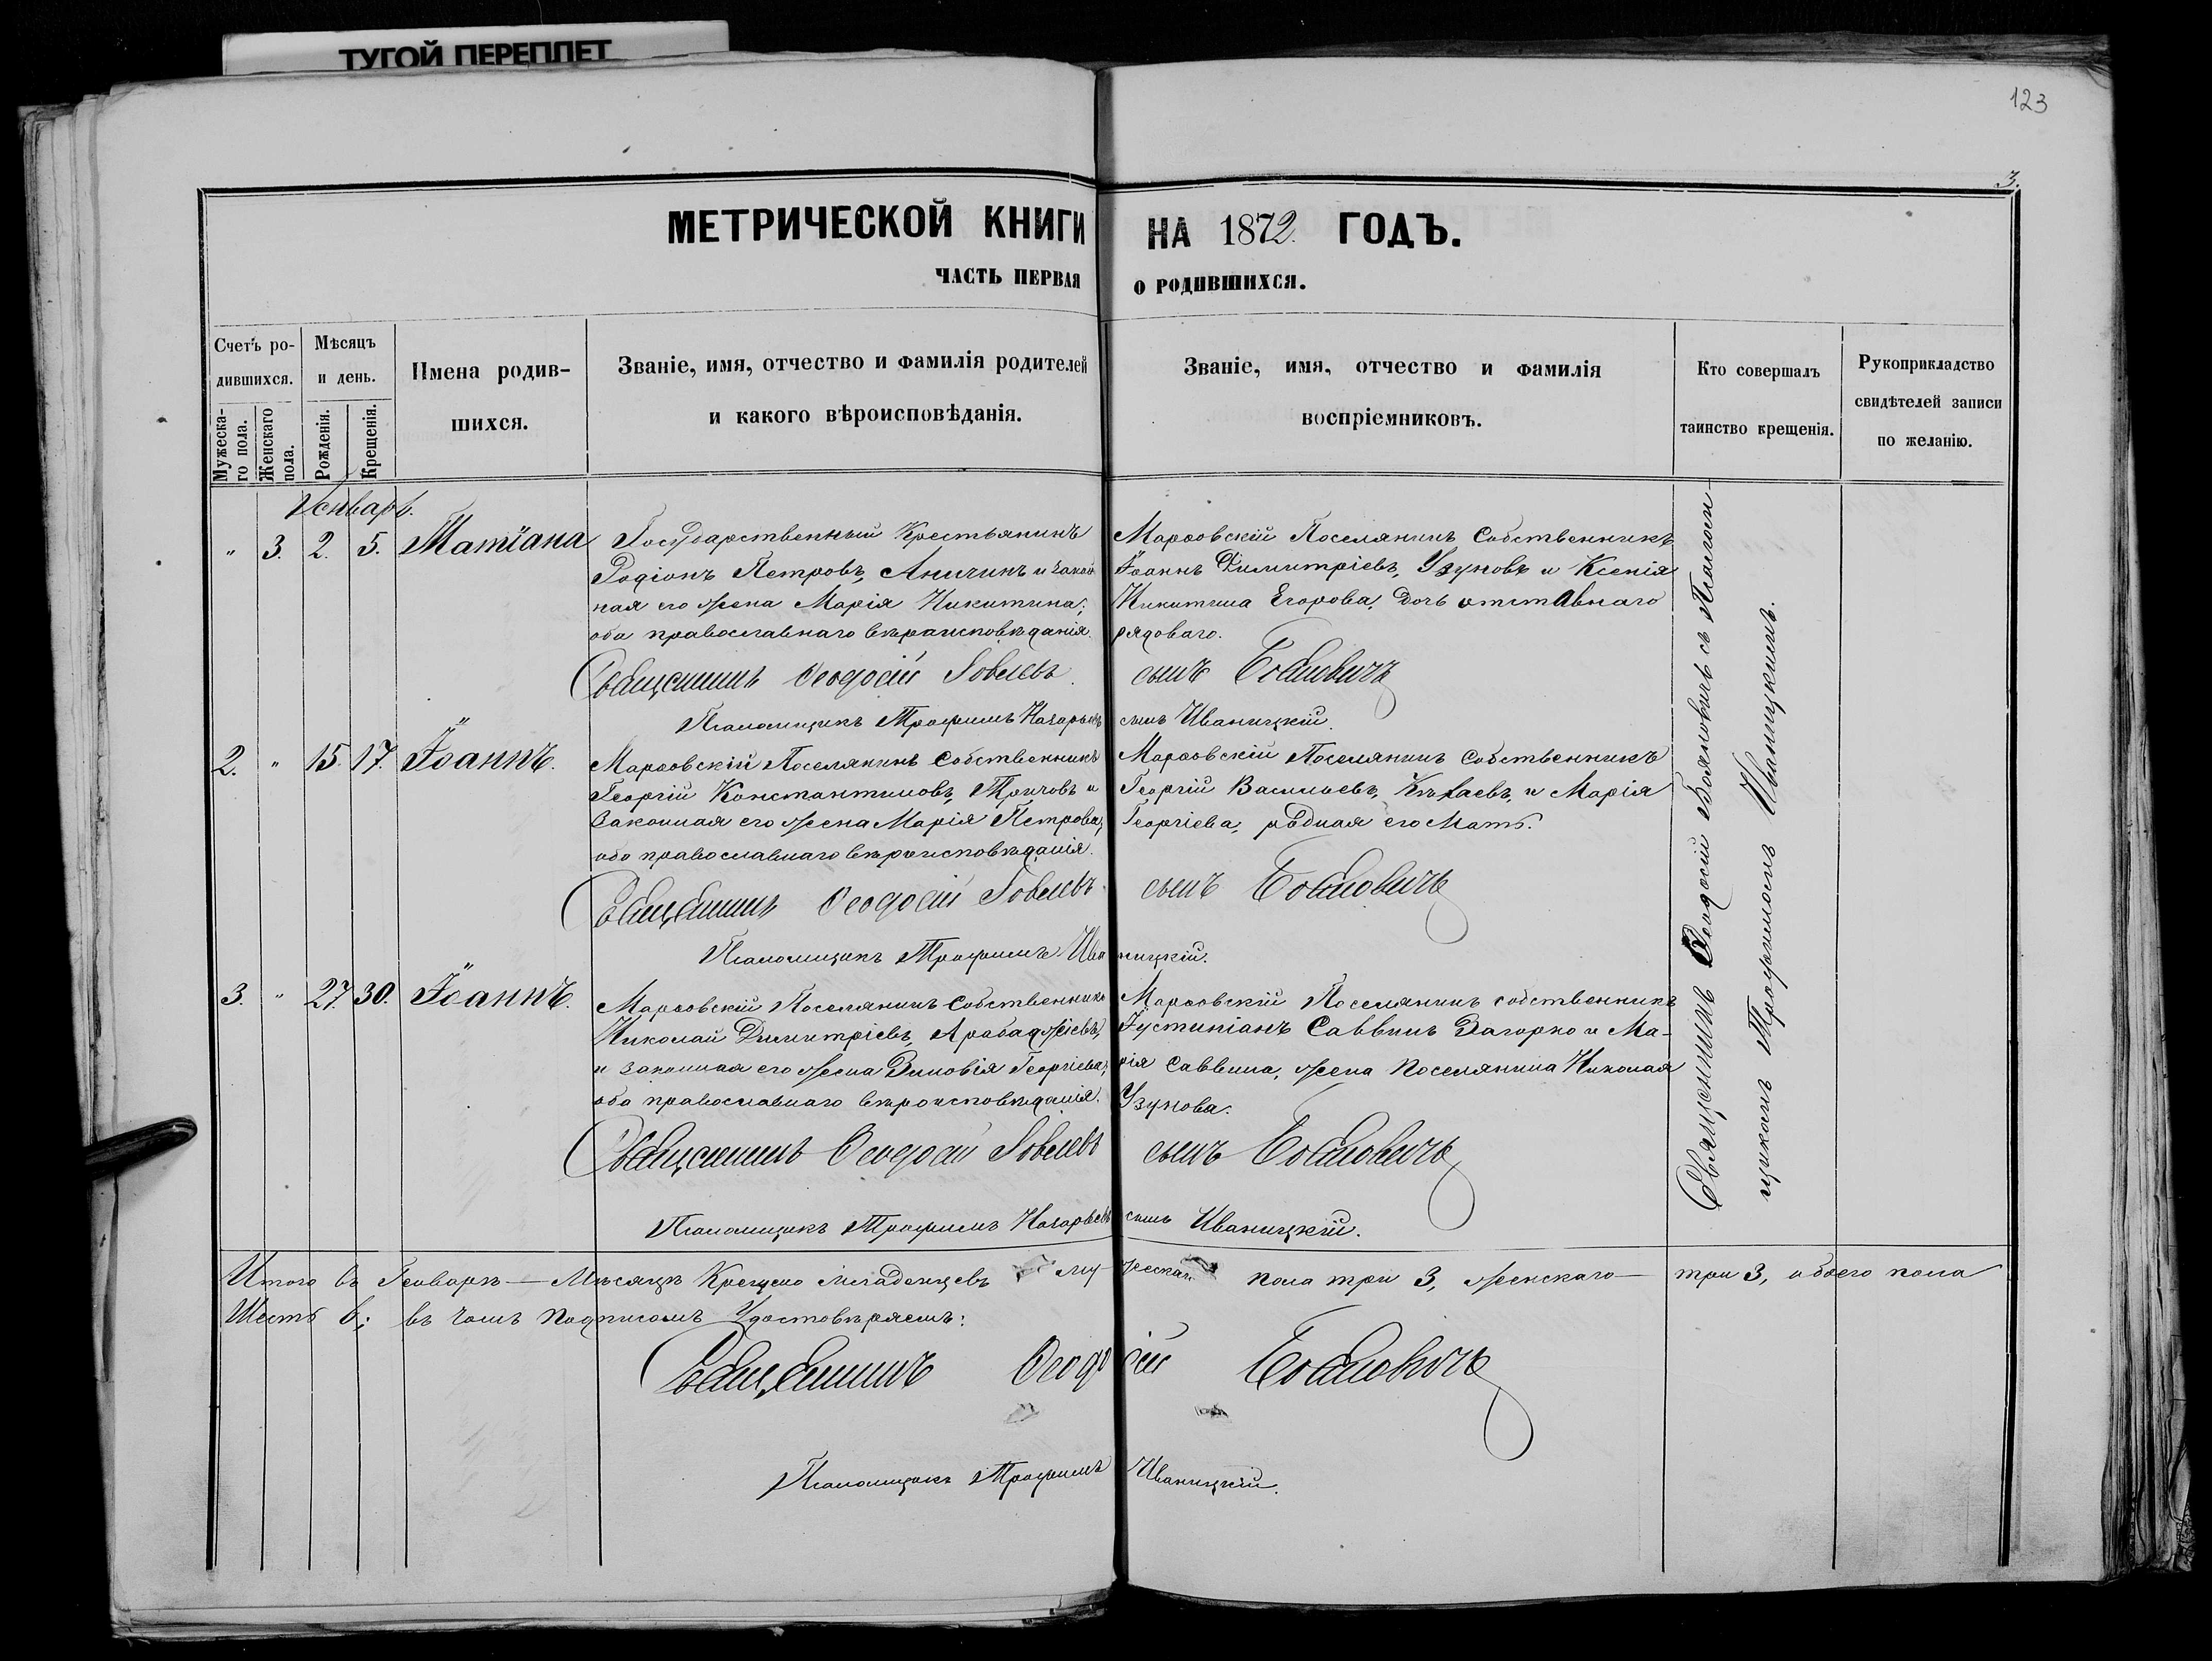 ТУГОЙ ПЕРЕПЛЕТ
123
3.
МЕТРИЧЕСКОЙ КНИГИ НА 1872 ГОДЪ.
ЧАСТЬ ПЕРВАЯ О РОДИВШИХСЯ.
Счетъ ро-
дившихся.
Мужеска-
го пола.
Женскаго
пола.
Мѣсяцъ
и день.
Рожденія.
Крещенія.
Имена родив-
шихся.
Званіе, имя, отчество и фамилія родителей
и какого вѣроисповѣданія.
Званіе, имя, отчество и фамилія
воспріемниковъ.
Кто совершалъ
таинство крещенія.
Рукоприкладство
свидѣтелей записи
по желанію.
Январь.
" 3. 2. 5. Татіана
Государственный Крестьянинъ
Родіонъ Петровъ, Аничинъ и закон
ная его жена Марія Никитина;
оба православнаго вѣроисповѣданія.
Марѳовскій Поселянинъ Собственникъ
Іоаннъ Димитріевъ, Узуновъ и Ксенія
Никитина Егорова, дочь отставнаго
рядоваго.
Священникъ Ѳеодосій Іовлевъ сынъ Бояновичъ
Псаломщикъ Трофимъ Назарьевъ сынъ Иваницкій.
2. " 15. 17. Іоаннъ.
Марѳовскій Поселянинъ Собственникъ
Георгій Константиновъ, Тричовъ и
Законная его жена Марія Петрова;
оба православнаго вѣроисповѣданія.
Марѳовскій Поселянинъ Собственникъ
Георгій Васильевъ, и Марія
Георгіева, родная его Мать.
Священникъ Ѳеодосій Іовлевъ сынъ Бояновичъ
Псаломщикъ Трофимъ Иваницкій.
3. " 27. 30. Іоаннъ.
Марѳовскій Поселянинъ Собственникъ
Николай Димитріевъ, Арабаджіевъ,
и законная его жена Зиновія Георгіева;
оба православнаго вѣроисповѣданія.
Марѳовскій Поселянинъ собственникъ
Іустиніанъ Саввинъ Загорко и Ма-
рія Саввина, жена Поселянина Николая
Узунова.
Священникъ Ѳеодосій Іовлевъ сынъ Бояновичъ
Псаломщикъ Трофимъ Назарьевъ сынъ Иваницкій.
Священникъ Ѳеодосій Бояновичъ съ Псалом-
щикомъ Трофимомъ Иваницкимъ.
Итого въ Генварѣ — Мѣсяцѣ Крещено младенцевъ мужескаго пола три 3, женскаго — три 3, обоего пола
Шесть 6; въ чемъ подписомъ Удостовѣряемъ:
Священникъ Ѳеодосій Бояновичъ
Псаломщикъ Трофимъ Иваницкій.